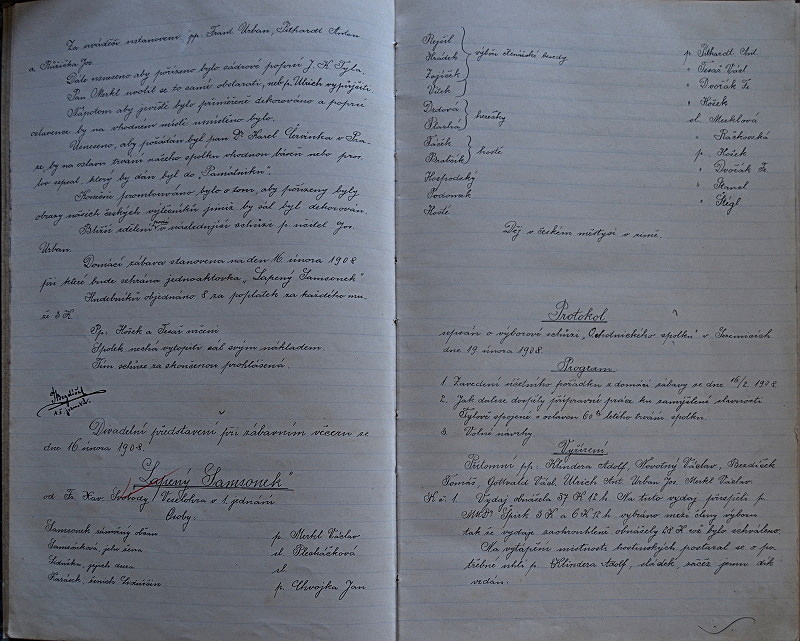 Za uváděče ustanoveni pp. Frant Urban, Pithardt Anton
a Růžička Jos.
Dále usneseno aby pořízeno bylo sádrové poprsí J. K. Tyla.
Pan Merkl uvolil se to samé obstarati, neb p. Ulrich vypůjčiti.
Nápotom aby jeviště bylo přiměřeně dekorováno a poprsí
oslavence by na vhodném místě umístěno bylo.
Usneseno, aby požádán byl pan Dr Karel Červinka v Pra-
ze, by na oslavu trvání našeho spolku vhodnou báseň nebo pro-
lov sepsal, který by dán byl do „Památníku".
Konečně promluveno bylo o tom, aby pořízeny byly
obrazy našich českých výtečníků jimiž by sál byl dekorován.
Bližší sdělení v následující schůzi p. učitel Jos.
Urban.
Domácí zábava stanovena na den 16 února 1908
při které bude sehrána jednoaktovka „Lapený Samsonek"
Hudebníků objednáno 8 za poplatek za každého mu-
že 3 K.
Pp. Hošek a Tesař
Spolek nechá vytopiti sál svým nákladem.
Tím schůze za skončenou prohlášena.
Divadelní představení při zábavním večeru se
dne 16 února 1908.
„Lapený Samsonek"
od Fr. Xav. Svobody / Veselohra o 1 jednání
Osoby:
Samsonek p. Merkl Václav
Samsonková, jeho žena sl. Plecháčková
Ludmila, jejich dcera sl.
Karásek, ženich p. Chvojka Jan
Rejsil p. Pithardt Ant.
Hrádek výbor čtenářské besedy " Tesař Václ
Zajíček " Dvořák Fr.
Vítek " Hošek
Drdová sl. Merklová
herečky " Račkovská
p. Hošek
hosté " Dvořák Fr.
Hospodský
" Štégl
Hosté
Děj v českém městysi v zimě.
Protokol
sepsán o výborové schůzi „Ochotnického spolku" v
dne 19 února 1908.
Program
1. Zavedení účelního pořádku z domácí zábavy se dne 16/2 1908
2. Jak dalece dospěly přípravné práce ku zamýšlené slavnosti
Tylově spojené s oslavou 60ti letého trvání spolku.
3. Volné návrhy
Vyřízení.
Přítomni pp. Klindera Adolf, Novotný Václav, Bezdíček
Tomáš, Gottwald Václ, Ulrich Ant. Urban Jos. Merkl Václav.
K č. 1. Výdaj obnášela 37 K 12 h. Na tuto výdaj přispěli p.
MUDr Špirk 3 K a 6 K 12 h vybráno mezi členy výboru
tak že výdaje zaokrouhleně obnášely 28 K což bylo schváleno.
Na vytápění místností hostinských postaral se o po-
třebné uhlí p. Klindera Adolf, sládek, začež jemu dík
vzdán.